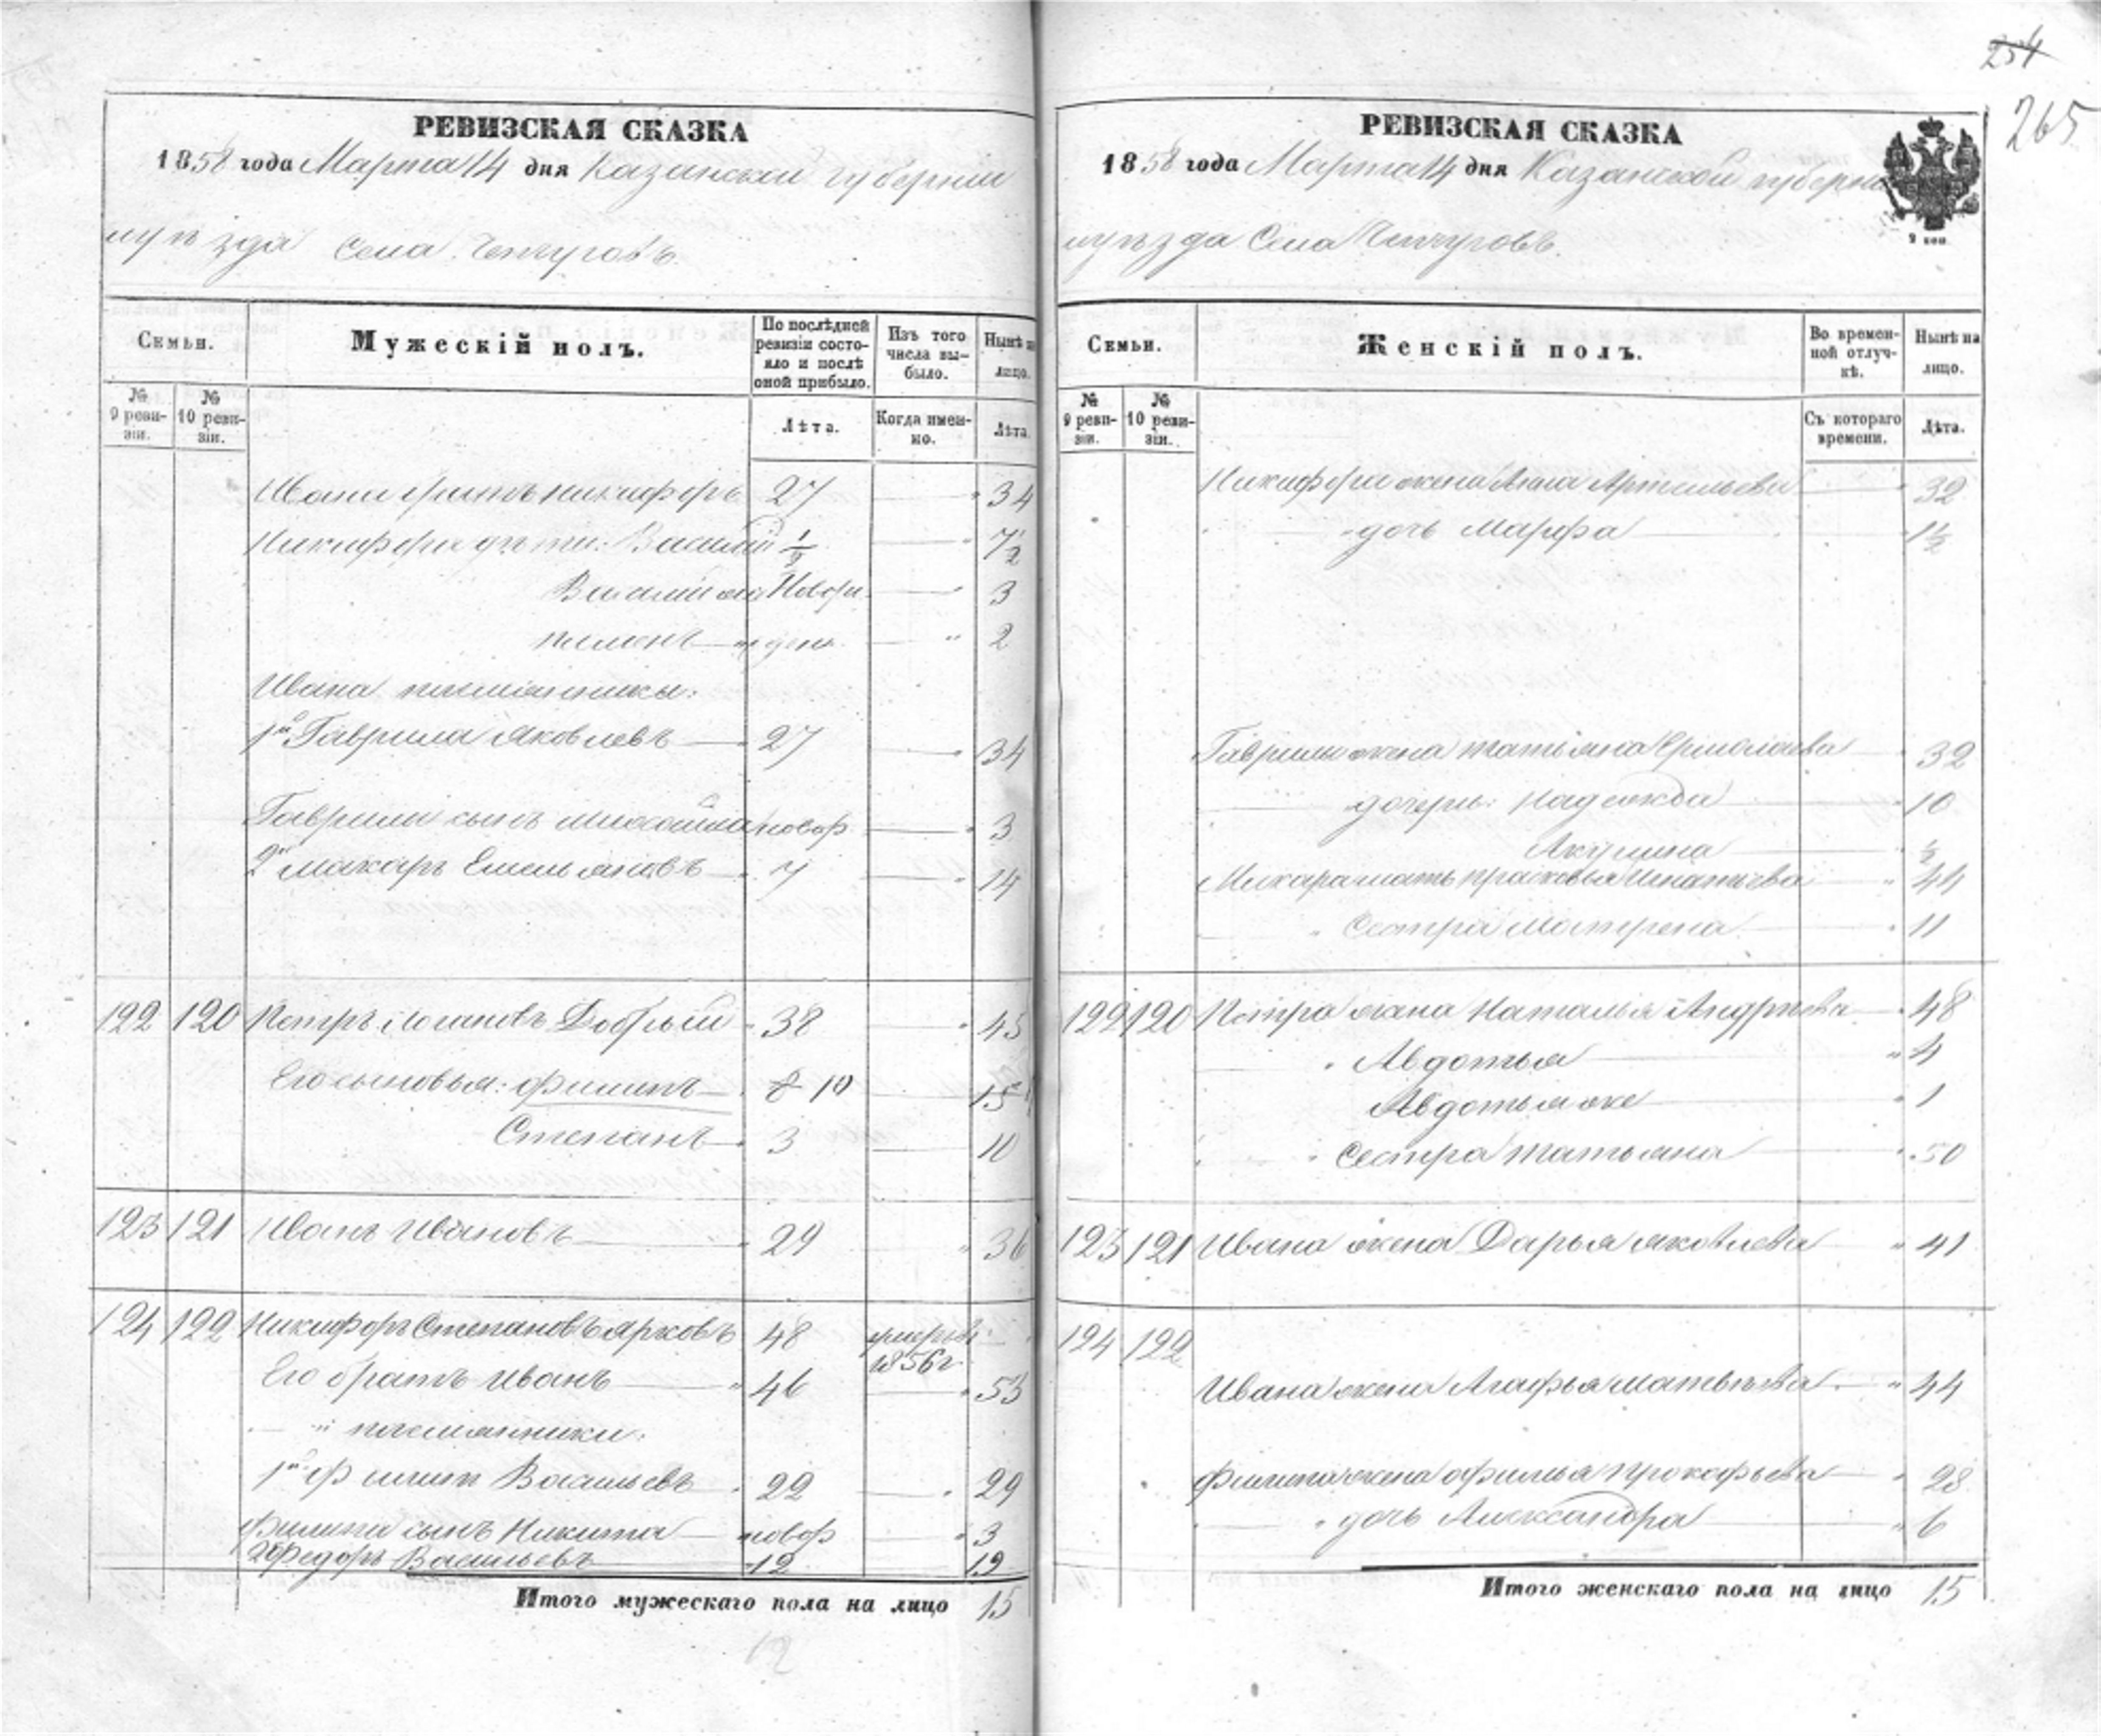 254
265
РЕВИЗСКАЯ СКАЗКА
1858 года Марта 14 дня Казанской губерніи
уѣзда Села Чепчуговъ.
Семьи.
Мужескій полъ.
По послѣдней ревизіи состояло и послѣ оной прибыло.
Изъ того числа выбыло.
Нынѣ на лицо.
№ 9 ревизіи.
№ 10 ревизіи.
Лѣта.
Когда именно.
Лѣта.
Ивана братъ Никифоръ 27 34
Никифора дѣти: Василій ½ 7½
Василій же Новор. 3
Пименъ 2
Ивана племянники:
1й Гаврила Яковлевъ 27 34
Гаврилы сынъ новор 3
2й Макаръ Емельяновъ 7 14
122 120 Петръ Добрый 38 45
Его сыновья: Филипъ 8 10 15
Степанъ 3 10
123 121 Иванъ Ивановъ 29 36
124 122 Никифоръ Степановъ Ярковъ 48 умеръ въ 1856 г.
Его братъ Иванъ 46 53
" племянники:
1й Филипп Васильевъ 22 29
Филипа сынъ Никита новор 3
2й Федоръ Васильевъ 12 19
Итого мужескаго пола на лицо 15
12
РЕВИЗСКАЯ СКАЗКА
1858 года Марта 14 дня Казанской губерніи
уѣзда Села Чепчуговъ.
2 коп
Семьи.
Женскій полъ.
Во временной отлучкѣ.
Нынѣ на лицо.
№ 9 ревизіи.
№ 10 ревизіи.
Съ котораго времени.
Лѣта.
Никифора жена Анна 32
дочь Марфа 1½
Гаврилы жена Татьяна Ермолаева 32
дочери: Надежда 10
Акулина ½
Макара мать Прасковья Игнатьева 44
Сестра Матрена 11
122 120 Петра жена Наталья Андреева 48
" Авдотья 4
Авдотья же 1
" Сестра Татьяна 50
123 121 Ивана жена Дарья Яковлева 41
124 122
Ивана жена Агафья Матвѣева 44
Филипа жена Афимья Прокофьева 28
" дочь Александра 6
Итого женскаго пола на лицо 15